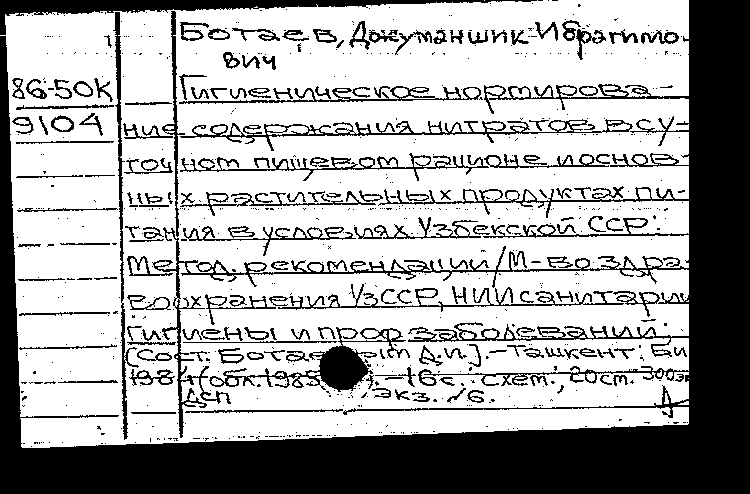 Ботаев, Джуманшик Ибрагимо-
вич
86-50К Гигиеническое нормирова-
9104 ние содержания нитратов в су-
точном пищевом рационе и основ-
ных растительных продуктах пи-
тания в условиях Узбекской ССР:
Метод. рекомендации/М-во здра-
воохранения УзССР, НИИ санитарии
гигиены и проф заболеваний:
[Сост. Ботаевым Д.И.].-Ташкент: Би
1984 (обл. 1985).-16 с.: схем.; 20 см. 300 эк
ДСП экз. /б.